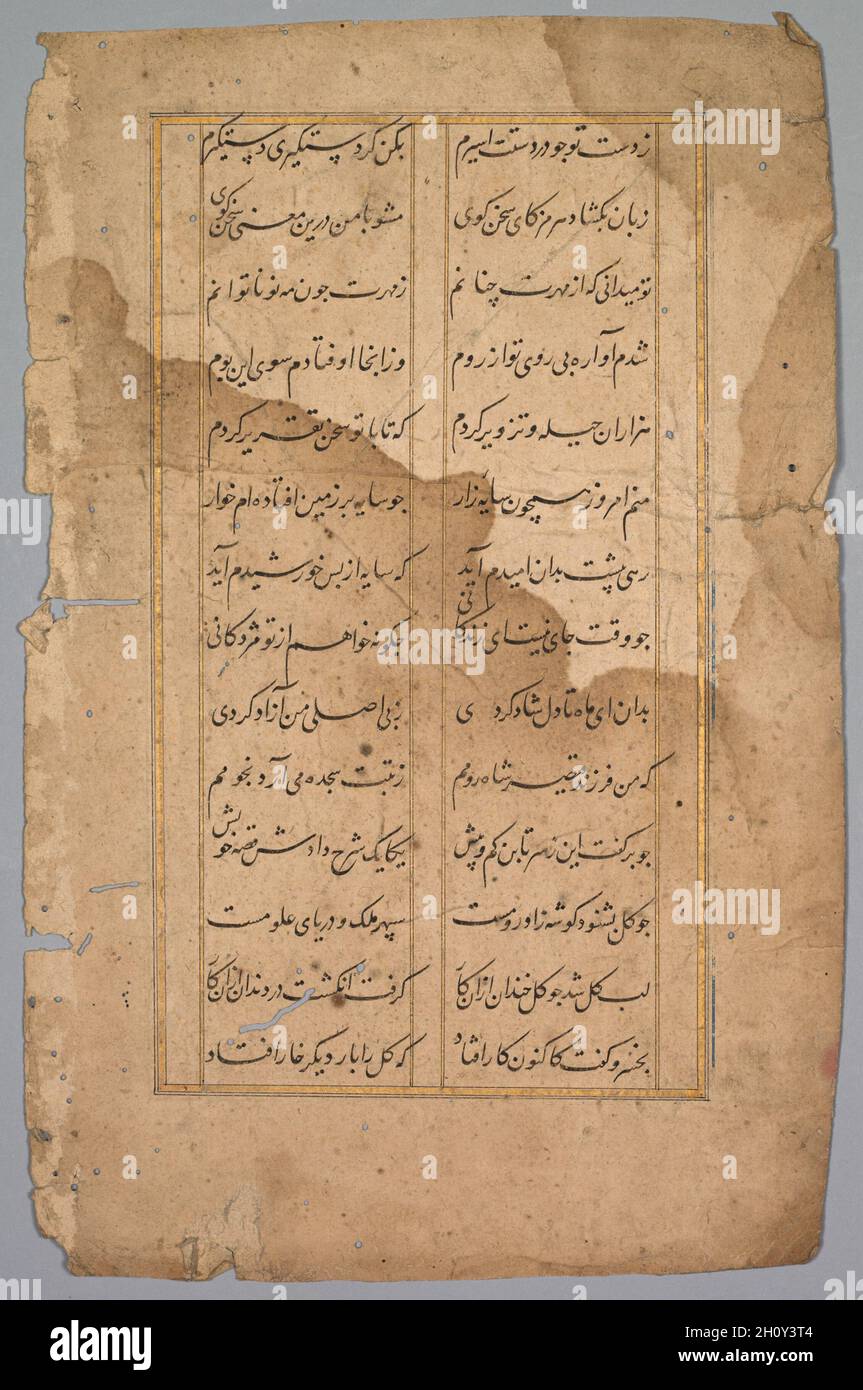 زدست تو جو در دستت اسیرم بکن کرد پستکیری دپستکیرم
زبان بکشاد هرمز کای سخن کوی مشو با من درین معنی سخن کوی
تو میدانی که از مهرت چنانم زمهرت جون مه نو ناتوانم
شدم آواره بی روی تو از روم وزانجا اوفتادم سوی این بوم
هزاران حیله و تزویر کردم که تا با تو سخن تقریر کردم
منم امروز همچون سایه زار جو سایه بر زمین افتاده ام خوار
رهی پشت بدان امیدم آید که سایه از بس خورشیدم آید
جو وقت جای نیست ای زندکانی جکونه خواهم از تو مژدکانی
بدان ای ماه تا دل شاد کردی زبی اصلی من آزاد کردی
که من فرزند قیصر شاه رومم زتبت سجده می آرد نجومم
جو برکفت این زسر تا بن کم و پیش یکایک شرح دادش قصه خویش
جو کل بشنود کو شهزاد رومست سپهر ملک و دریای علومست
لب کل شد جو کل خندان ازان کار کرفت انکشت در دندان ازان کار
بخسرو کفت کاکنون کار افتاد که کل را بار دیکر خار افتاد
alamy
Image ID: 2H0Y3T4
www.alamy.com